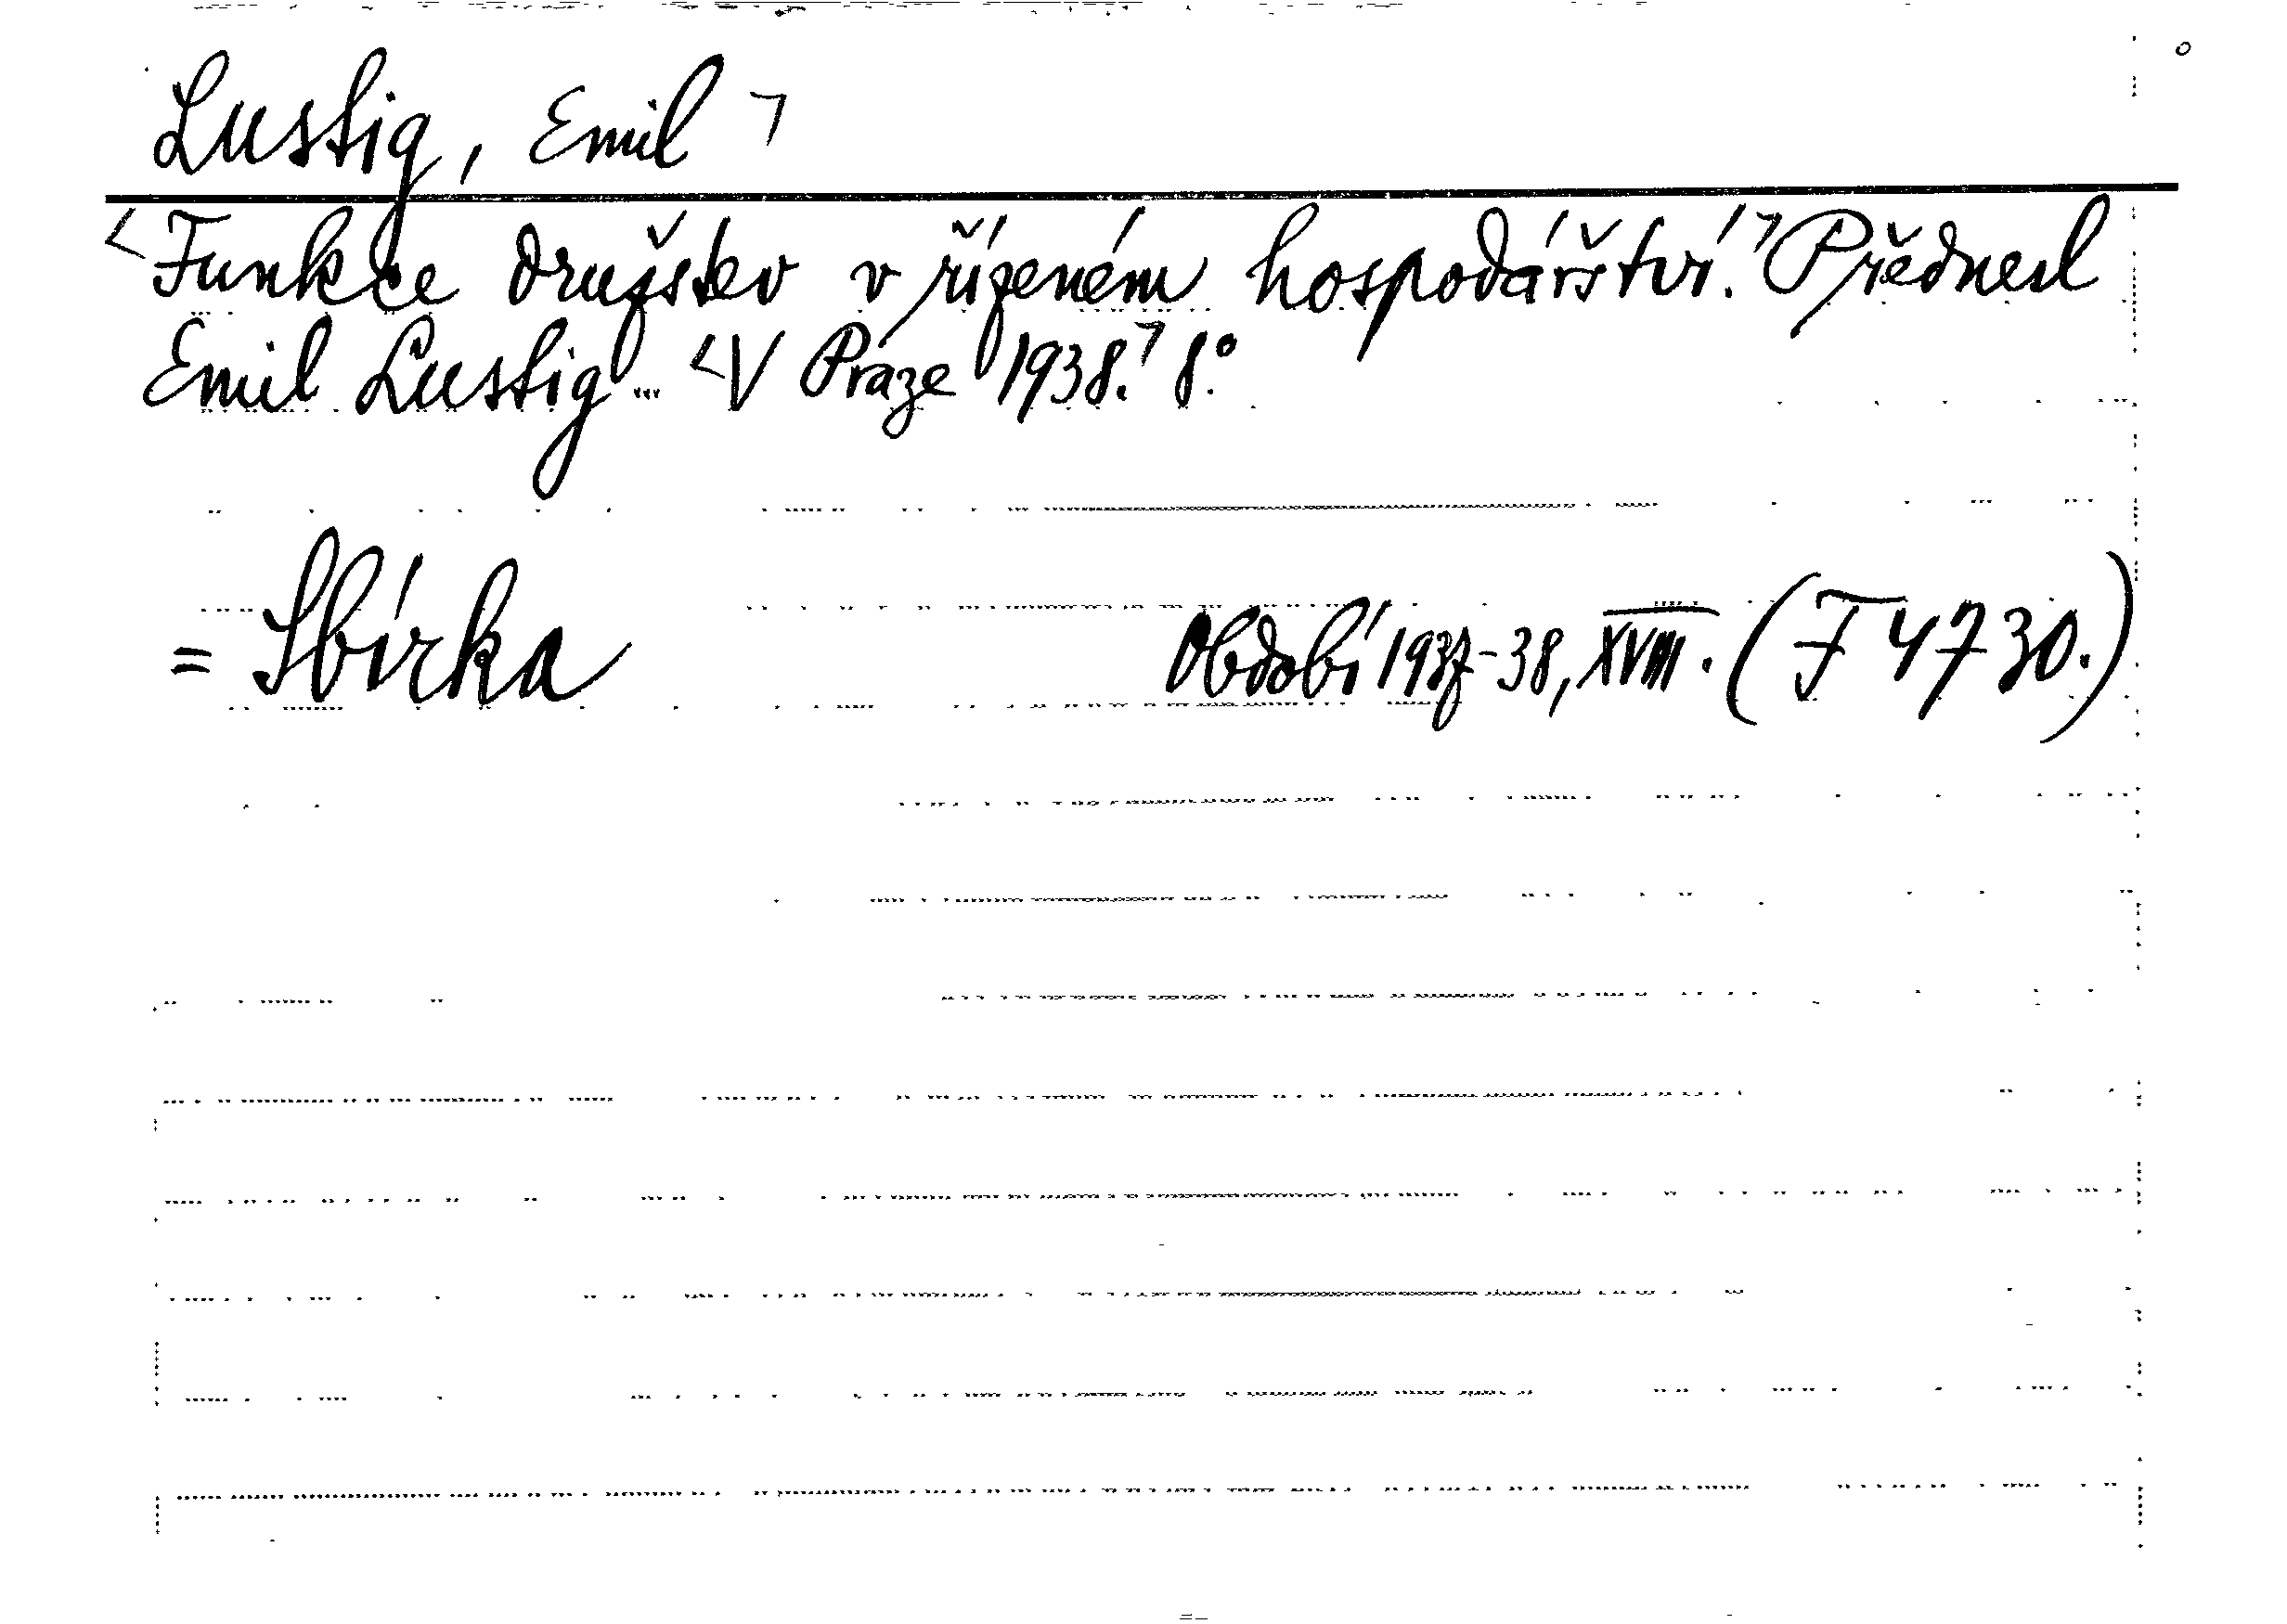 Lustig, Emil ┐
<Funkce družstev v řízeném hospodářství.┐ Přednesl
Emil Lustig... <V Praze 1938.┐ 8°.
= Sbírka Období 1937-38, XVIII. (F 4730.)